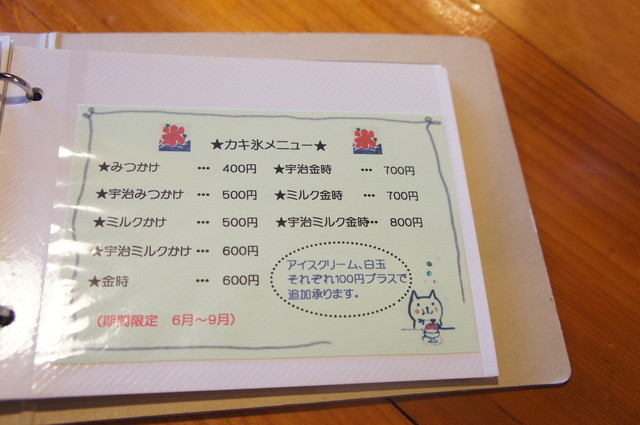 氷 ★カキ氷メニュー★ 氷
★みつかけ ••• 400円
★宇治みつかけ ••• 500円
★ミルクかけ ••• 500円
★宇治ミルクかけ ••• 600円
★金時 ••• 600円
(期間限定 6月～9月)
★宇治金時 ••• 700円
★ミルク金時 ••• 700円
★宇治ミルク金時••• 800円
アイスクリーム、白玉
それぞれ100円プラスで
追加承ります。